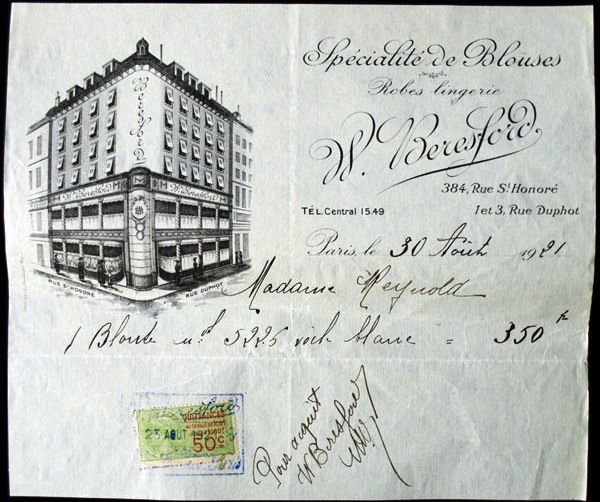 Spécialité de Blouses
Robes lingerie
W. Beresford
384, Rue St Honoré
TÉL. Central 15.49
1 et 3, Rue Duphot
Paris, le 30 Août 1921
Beresford
W. Beresford
RUE ST HONORÉ
RUE DUPHOT
Madame Reynold
1 Blouse no 5225 voile blanc = 350 fr
QUITTANCES
23 AOUT
50c
Pour acquit
W Beresford